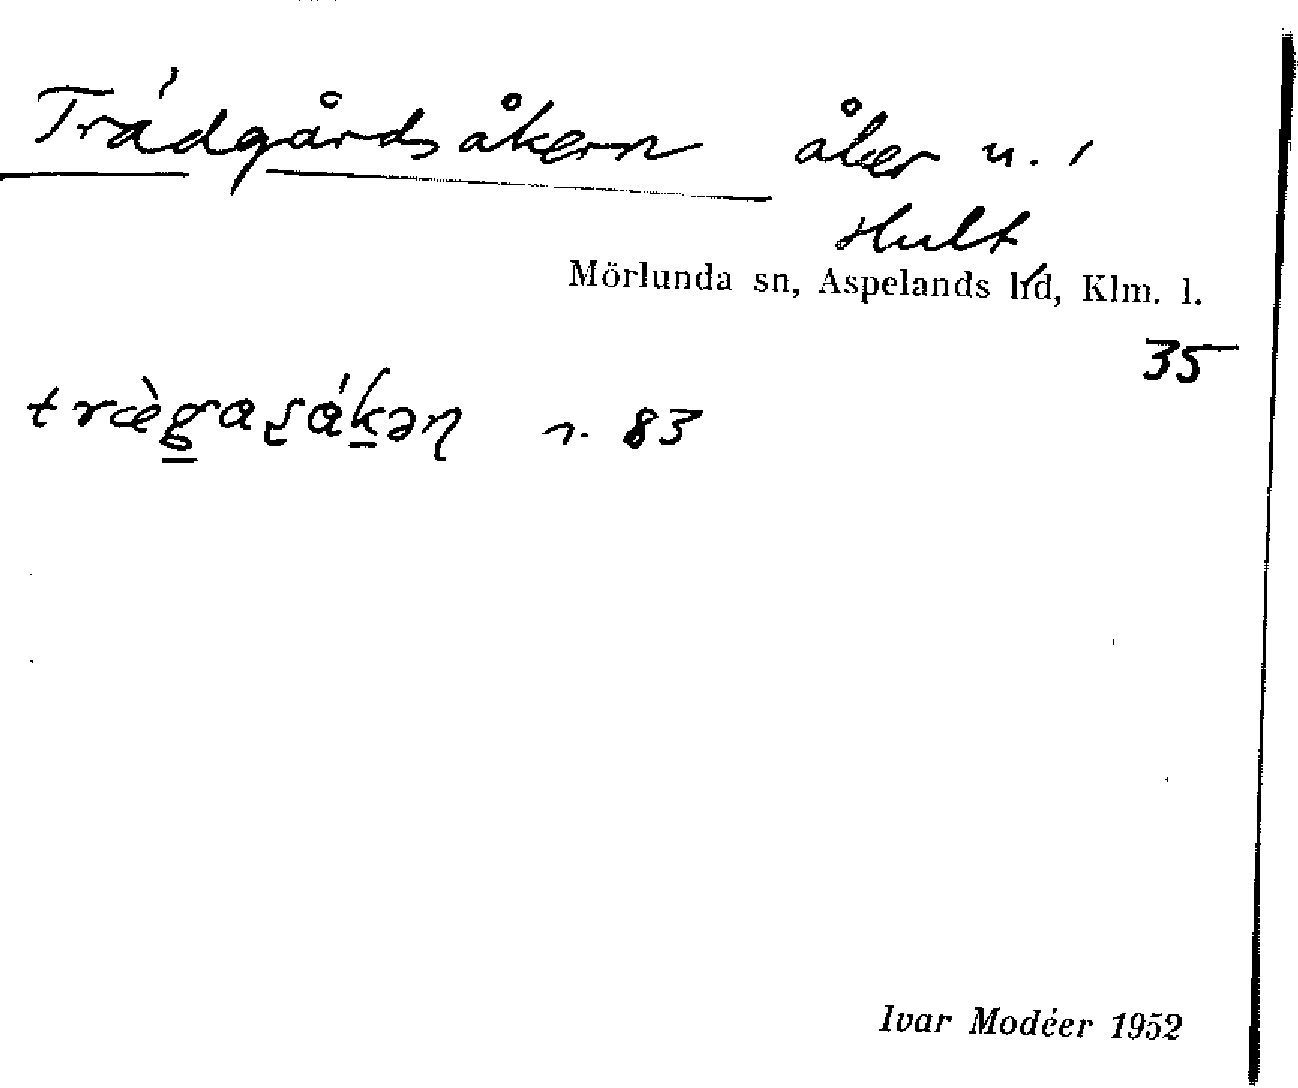 Trädgårdsåkern åker u. 1
Hult
Mörlunda sn, Aspelands hd, Klm. l.
35
træ̀g̲aʂák̲əɳ n. 83
Ivar Modéer 1952